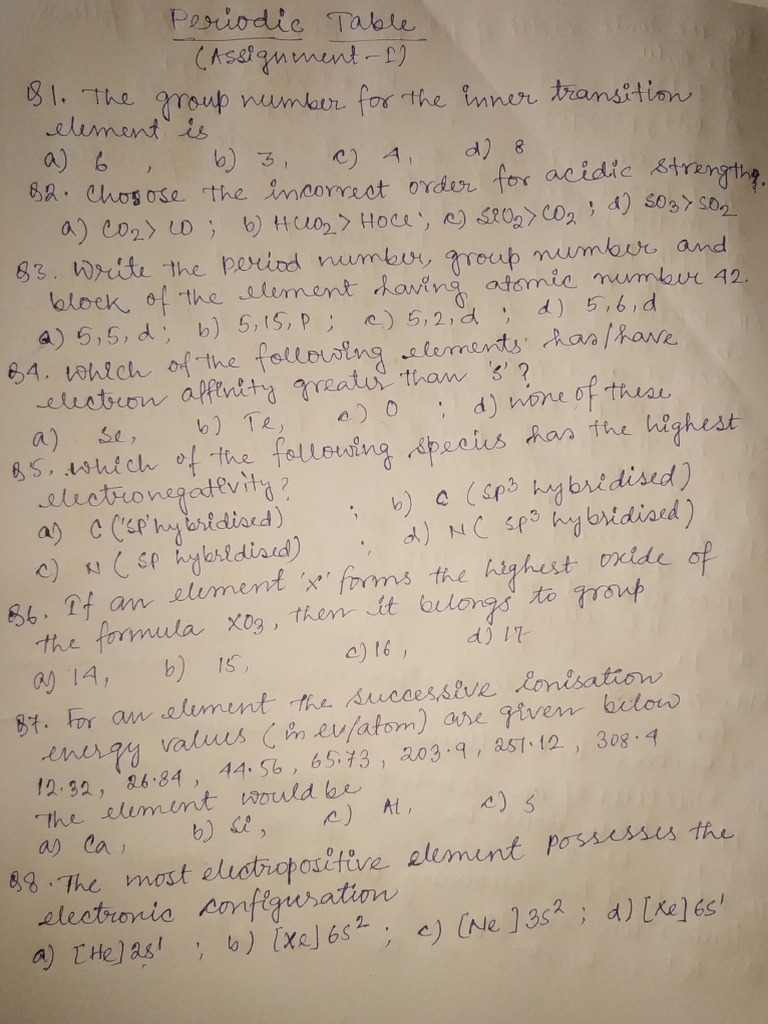 Periodic Table
(Assignment-1)
Q1. The group number for the inner transition
element is
a) 6 , b) 3, c) 4, d) 8
Q2. Choose the incorrect order for acidic strength.
a) CO2 > CO ; b) HClO2 > HOCl ; c) SiO2 > CO2 ; d) SO3 > SO2
Q3. Write the period number, group number and
block of the element having atomic number 42.
a) 5,5,d ; b) 5,15,P ; c) 5,2,d ; d) 5,6,d
Q4. Which of the following elements has/have
electron affinity greater than 'S'?
a) Se, b) Te, c) O ; d) none of these
Q5. which of the following species has the highest
electronegativity?
a) C ('SP' hybridised) ; b) C (SP3 hybridised)
c) N (SP hybridised) ; d) N (SP3 hybridised)
Q6. If an element 'X' forms the highest oxide of
the formula XO3, then it belongs to group
a) 14, b) 15, c) 16, d) 17
Q7. For an element the successive ionisation
energy values (in ev/atom) are given below
12.32, 26.84, 44.56, 65.73, 203.9, 257.12, 308.4
The element would be
a) Ca, b) Si, c) Al, c) S
Q8. The most electropositive element possesses the
electronic configuration
a) [He]2s1 ; b) [Xe]6s2 ; c) [Ne]3s2 ; d) [Xe]6s1